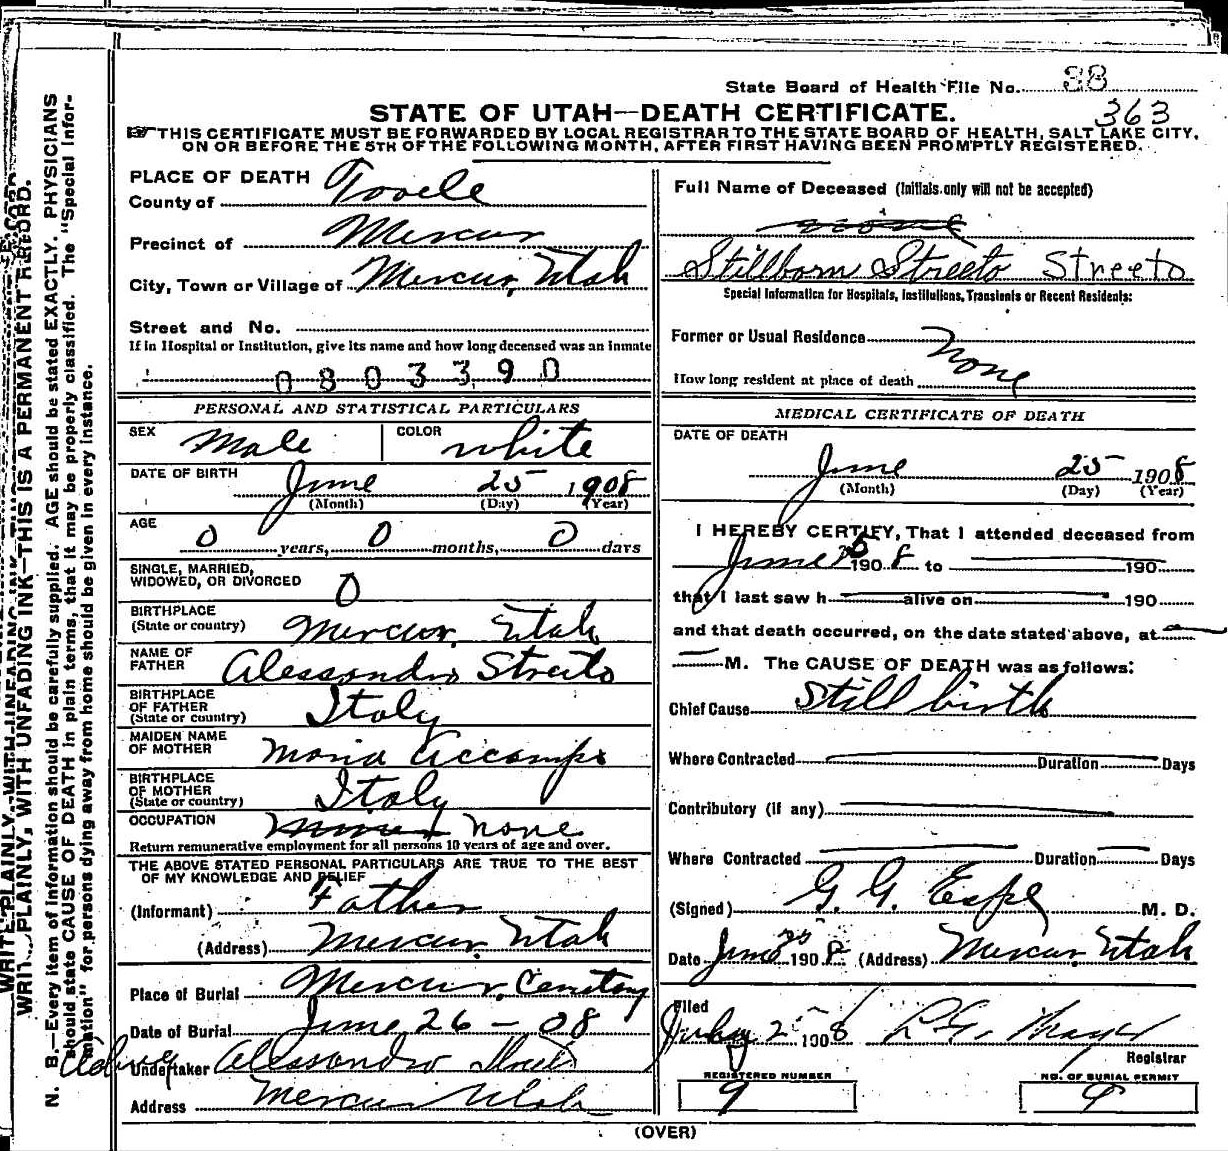 State Board of Health File No. 38
363
STATE OF UTAH—DEATH CERTIFICATE.
☞THIS CERTIFICATE MUST BE FORWARDED BY LOCAL REGISTRAR TO THE STATE BOARD OF HEALTH, SALT LAKE CITY,
ON OR BEFORE THE 5TH OF THE FOLLOWING MONTH, AFTER FIRST HAVING BEEN PROMPTLY REGISTERED.
PLACE OF DEATH
County of Tooele
Precinct of Mercur
City, Town or Village of Mercur, Utah
Street and No.
If in Hospital or Institution, give its name and how long deceased was an inmate
0803390
PERSONAL AND STATISTICAL PARTICULARS
SEX Male COLOR white
DATE OF BIRTH June 25 1908
(Month) (Day) (Year)
AGE
0 years, 0 months, 0 days
SINGLE, MARRIED,
WIDOWED, OR DIVORCED 0
BIRTHPLACE
(State or country) Mercur, Utah
NAME OF
FATHER Alessandro Streeto
BIRTHPLACE
OF FATHER
(State or country) Italy
MAIDEN NAME
OF MOTHER Maria Accampo
BIRTHPLACE
OF MOTHER
(State or country) Italy
OCCUPATION none
Return remunerative employment for all persons 10 years of age and over.
THE ABOVE STATED PERSONAL PARTICULARS ARE TRUE TO THE BEST
OF MY KNOWLEDGE AND BELIEF
(Informant) Father
(Address) Mercur, Utah
Place of Burial Mercur, Cemetery
Date of Burial June 26 - 08
Undertaker Alessandro
Address Mercur Utah
Full Name of Deceased (Initials only will not be accepted)
none
Stillborn Streeto Streeto
Special Information for Hospitals, Institutions, Transients or Recent Residents:
Former or Usual Residence None
How long resident at place of death
MEDICAL CERTIFICATE OF DEATH
DATE OF DEATH
June 25 1908
(Month) (Day) (Year)
I HEREBY CERTIFY, That I attended deceased from
June 25 1908 to 190
that I last saw h alive on 190
and that death occurred, on the date stated above, at
M. The CAUSE OF DEATH was as follows:
Chief Cause Still birth
Where Contracted Duration Days
Contributory (if any)
Where Contracted Duration Days
(Signed) G. G. Espe M. D.
Date June 25 1908 (Address) Mercur, Utah
Filed
July 2 1908
Registrar
REGISTERED NUMBER
9
NO. OF BURIAL PERMIT
9
(OVER)
WRITE PLAINLY, WITH UNFADING INK—THIS IS A PERMANENT RECORD.
N. B.—Every item of information should be carefully supplied. AGE should be stated EXACTLY. PHYSICIANS
should state CAUSE OF DEATH in plain terms, that it may be properly classified. The "Special Infor-
mation" for persons dying away from home should be given in every instance.